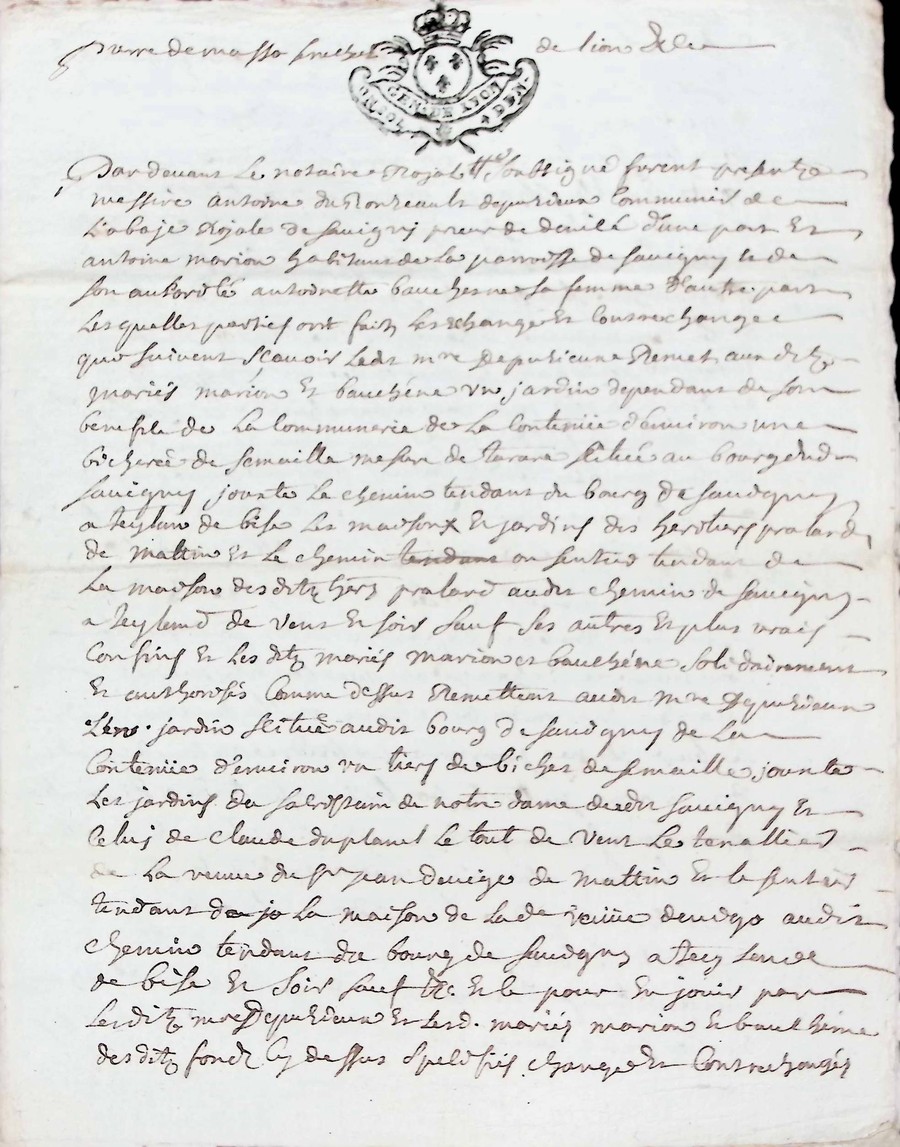 pierre de masso de lion &c
GEN. DE LYON
UN SOL 4 DEN.
Pardevant Le notaire Royal soussigné furent presents
messire antoine du Ronzeault depuzieux Communier de
L'abaje Rojale de Savigny prieur de d'une part Et
antoine marion habitant de La parroisse de Savigny et de
son authorité antoinette bauchesne sa femme d'autre part
Lesquelles parties ont fait Les Echange Et Contrechange
qui suivent scavoir Ledit mre Depuzieux Remet aux ditz
mariés marion Et bauchéne un jardin dependant de son
benefice de La Communerie de La Contenüe d'environ une
bicherée de semaille mesure de tarare scitüé au bourg dud
Savigny jouxte Le chemin tendant du bourg de Savigny
a de bise Les maisons Et jardins des heritiers pralard
de mattin Et Le chemin tendant ou sentier tendant de
La maison desditz hers pralard audit chemin de Savigny
a de vent Et soir sauf ses autres Et plus vrais
Confins Et Les ditz mariés marion et bauchéne solidairement
Et authorisés Comme dessus Remettent audit mre Depuzieux
jardin scitüé audit bourg de Savigny de La
Contenüe d'environ un tiers de bichet de semaille jouxte
Les jardins du sacristain de notre dame dudit Savigny Et
Celuj de Claude duplanel Le tout de vent Le tenallier
de La veuve du sr jean de mattin Et le sentier
tendant de jo La maison de Lade veuve audit
chemin tendant du bourg de Savigny a
de bise Et soir sauf &c. Et ce pour En jouir par
Lesditz mre Depuzieux Et Lesd. mariés marion Et bauchéne
desditz fondz Cy dessus specifiés changés Et Contrechangés